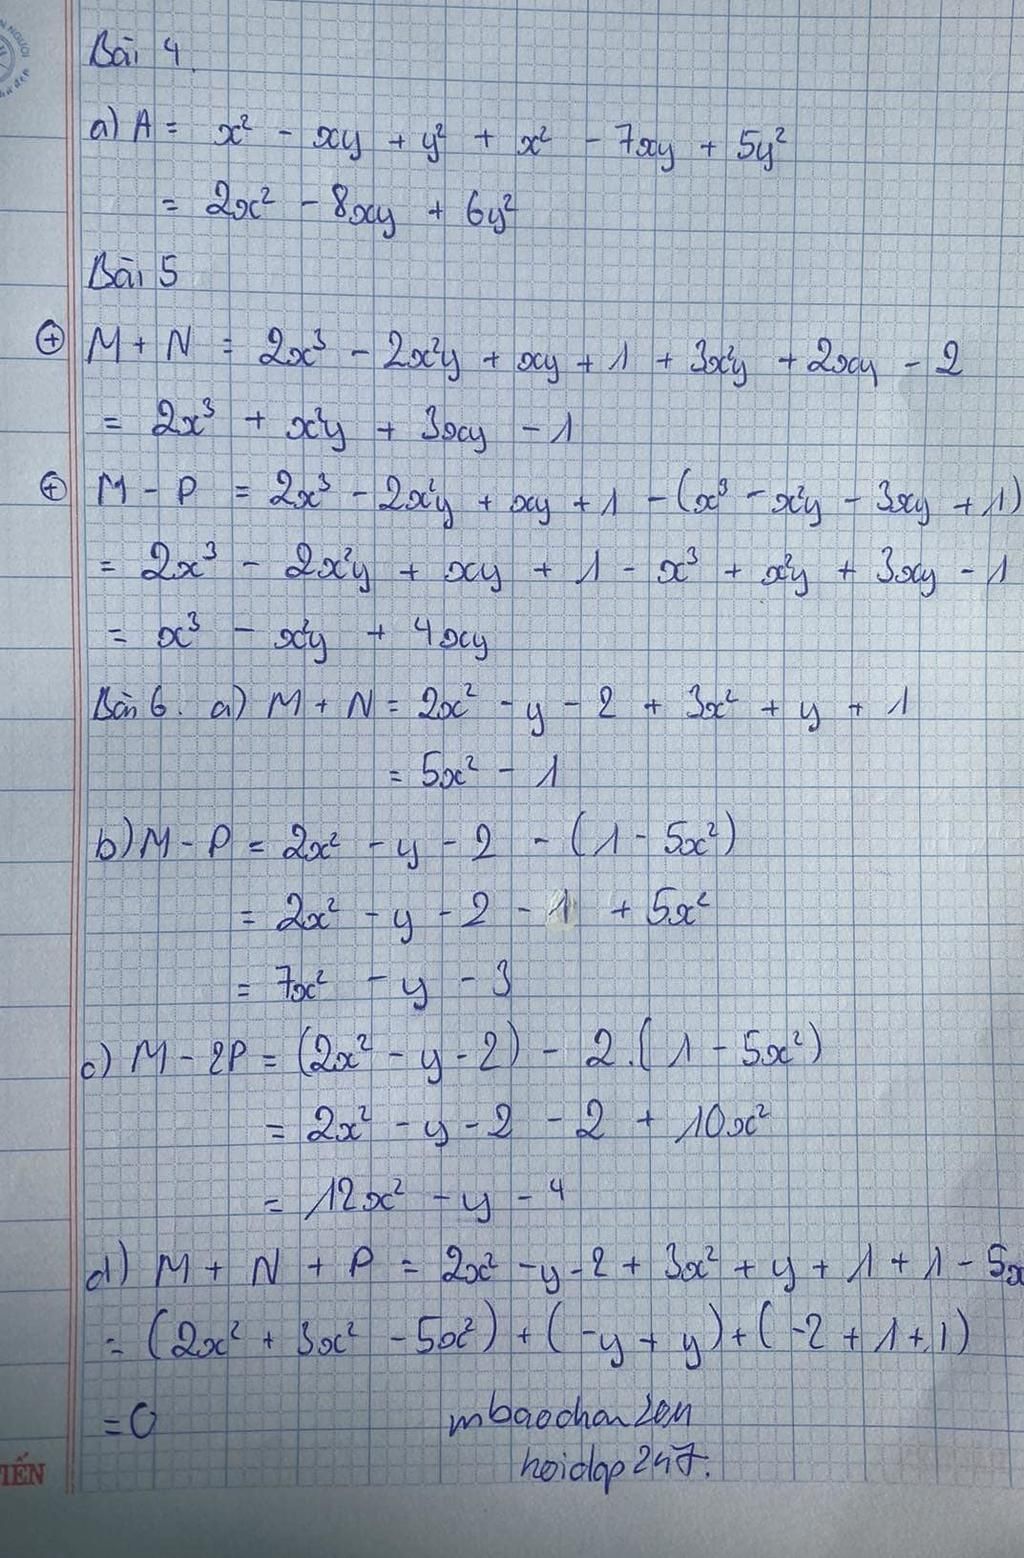 Bài 4.
a) A = x² - xy + y² + x² - 7xy + 5y²
= 2x² - 8xy + 6y²
Bài 5
⊕ M + N = 2x³ - 2x²y + xy + 1 + 3x²y + 2xy - 2
= 2x³ + x²y + 3xy - 1
⊕ M - P = 2x³ - 2x²y + xy + 1 - (x³ - x²y - 3xy + 1)
= 2x³ - 2x²y + xy + 1 - x³ + x²y + 3xy - 1
= x³ - x²y + 4xy
Bài 6. a) M + N = 2x² - y - 2 + 3x² + y + 1
= 5x² - 1
b) M - P = 2x² - y - 2 - (1 - 5x²)
= 2x² - y - 2 - 1 + 5x²
= 7x² - y - 3
c) M - 2P = (2x² - y - 2) - 2.(1 - 5x²)
= 2x² - y - 2 - 2 + 10x²
= 12x² - y - 4
d) M + N + P = 2x² - y - 2 + 3x² + y + 1 + 1 - 5x
= (2x² + 3x² - 5x²) + (-y + y) + (-2 + 1 + 1)
= 0
mbaochan2011
hoidap247.
TIẾN